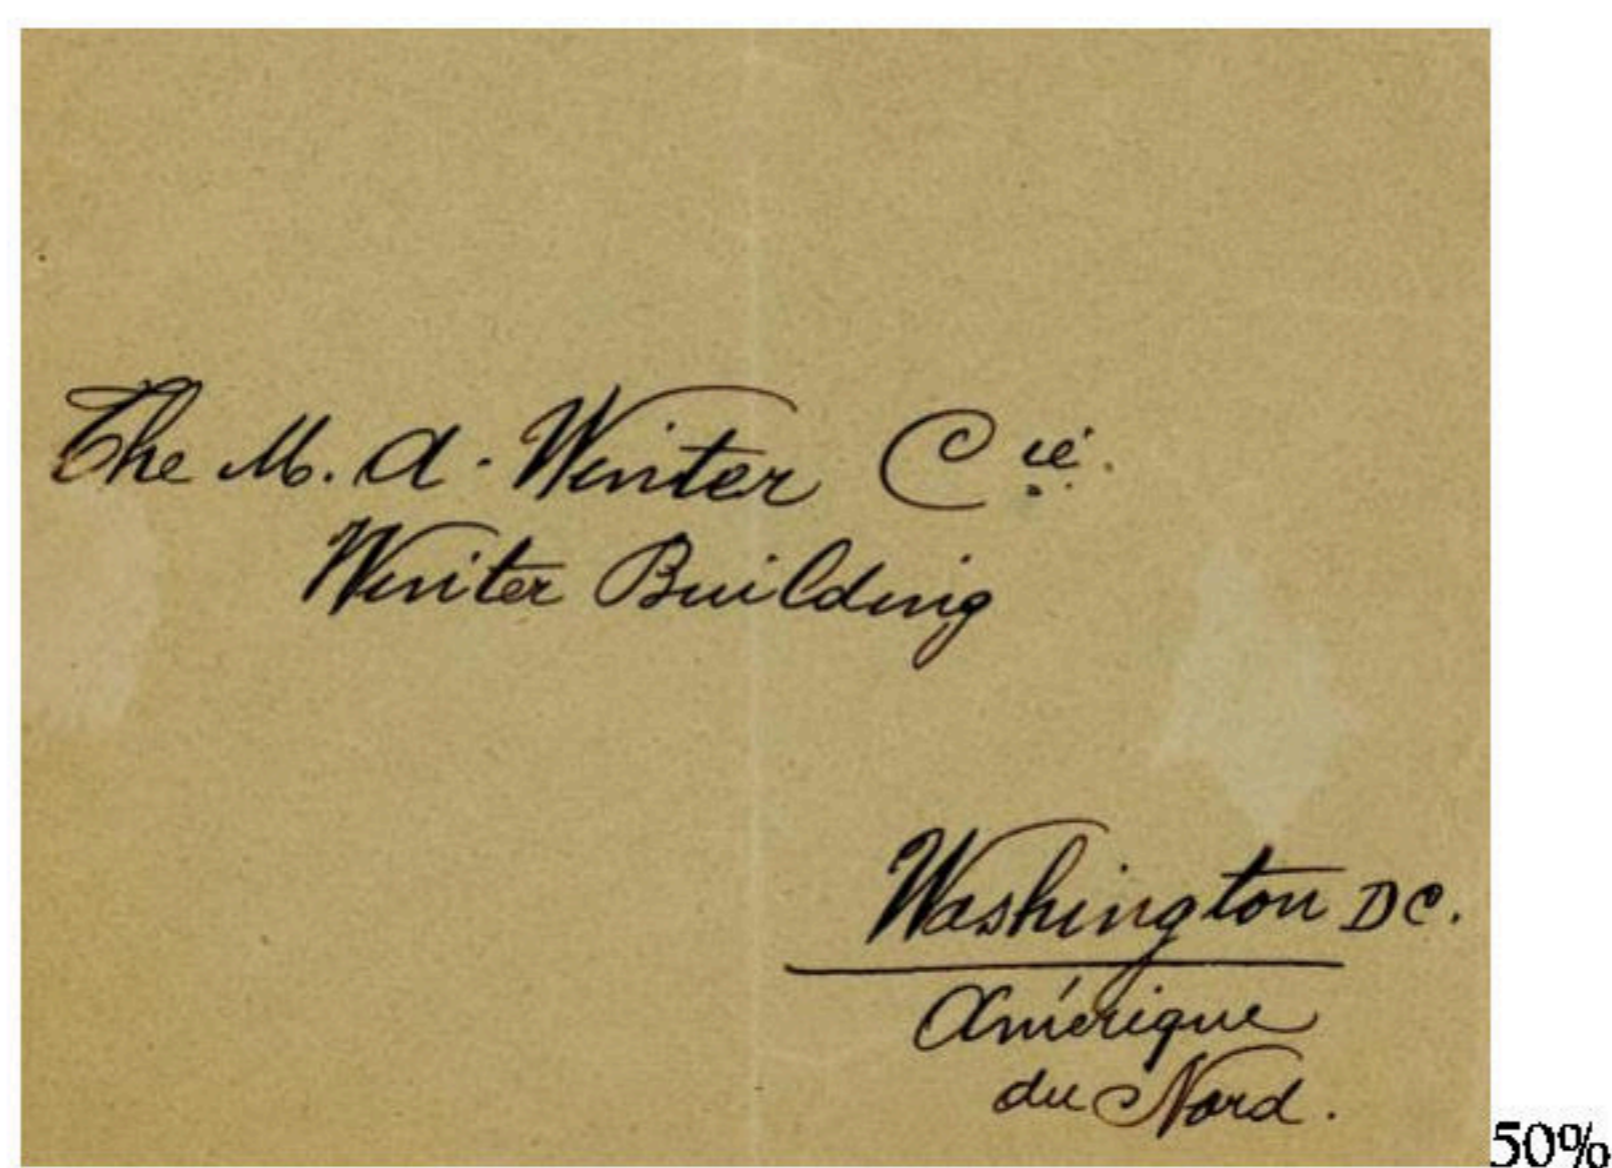 The M. A. Winter Cie.
Winter Building
Washington DC.
Amérique
du Nord.
50%